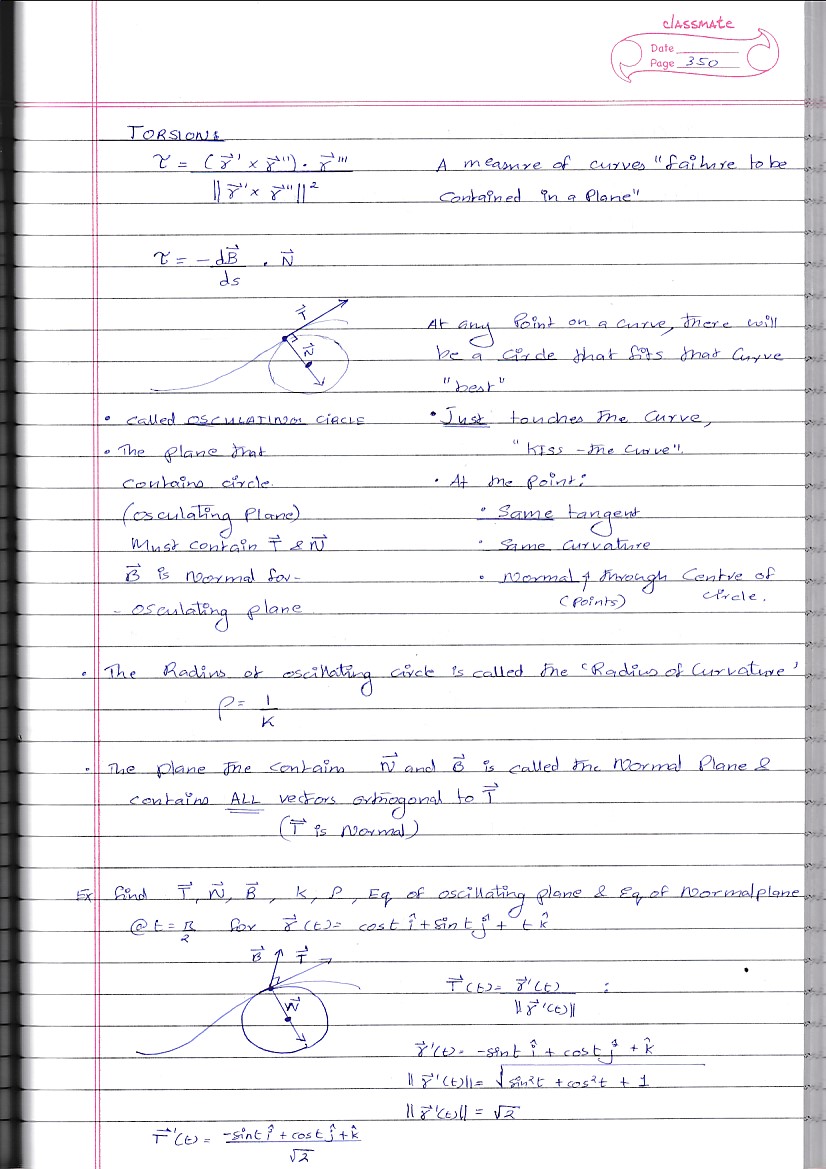 classmate
Date
Page 350
TORSION:
τ = (r⃗' × r⃗'') · r⃗'''
‖ r⃗' × r⃗'' ‖²
A measure of curves "failure to be
Contained in a Plane"
τ = -dB⃗ . N⃗
ds
T⃗
N⃗
At any Point on a curve, there will
be a circle that fits that Curve
"best"
• called OSCULATING CIRCLE
• The plane that
contains circle.
(Osculating Plane)
Must contain T⃗ & N⃗
B⃗ is Normal for-
- osculating plane
• Just touches the Curve,
"Kiss -the curve".
• At the point:
• Same tangent
• Same Curvature
• Normal ↑ through Centre of
(points) circle.
• The Radius of oscillating circle is called the 'Radius of Curvature'
ρ = 1
K
• The plane the contains N⃗ and B⃗ is called the Normal Plane &
contains ALL vectors orthogonal to T⃗
(T⃗ is Normal)
Ex find T⃗, N⃗, B⃗, K, ρ, Eq of oscillating plane & Eq of Normal plane
@ t = π/2 for r⃗(t) = cost î + sint ĵ + t k̂
B⃗ T⃗
N⃗
T⃗(t) = r⃗'(t) :
‖r⃗'(t)‖
r⃗'(t) = -sint î + cost ĵ + k̂
‖r⃗'(t)‖ = √sin²t + cos²t + 1
‖r⃗'(t)‖ = √2
T⃗'(t) = -sint î + cost ĵ + k̂
√2